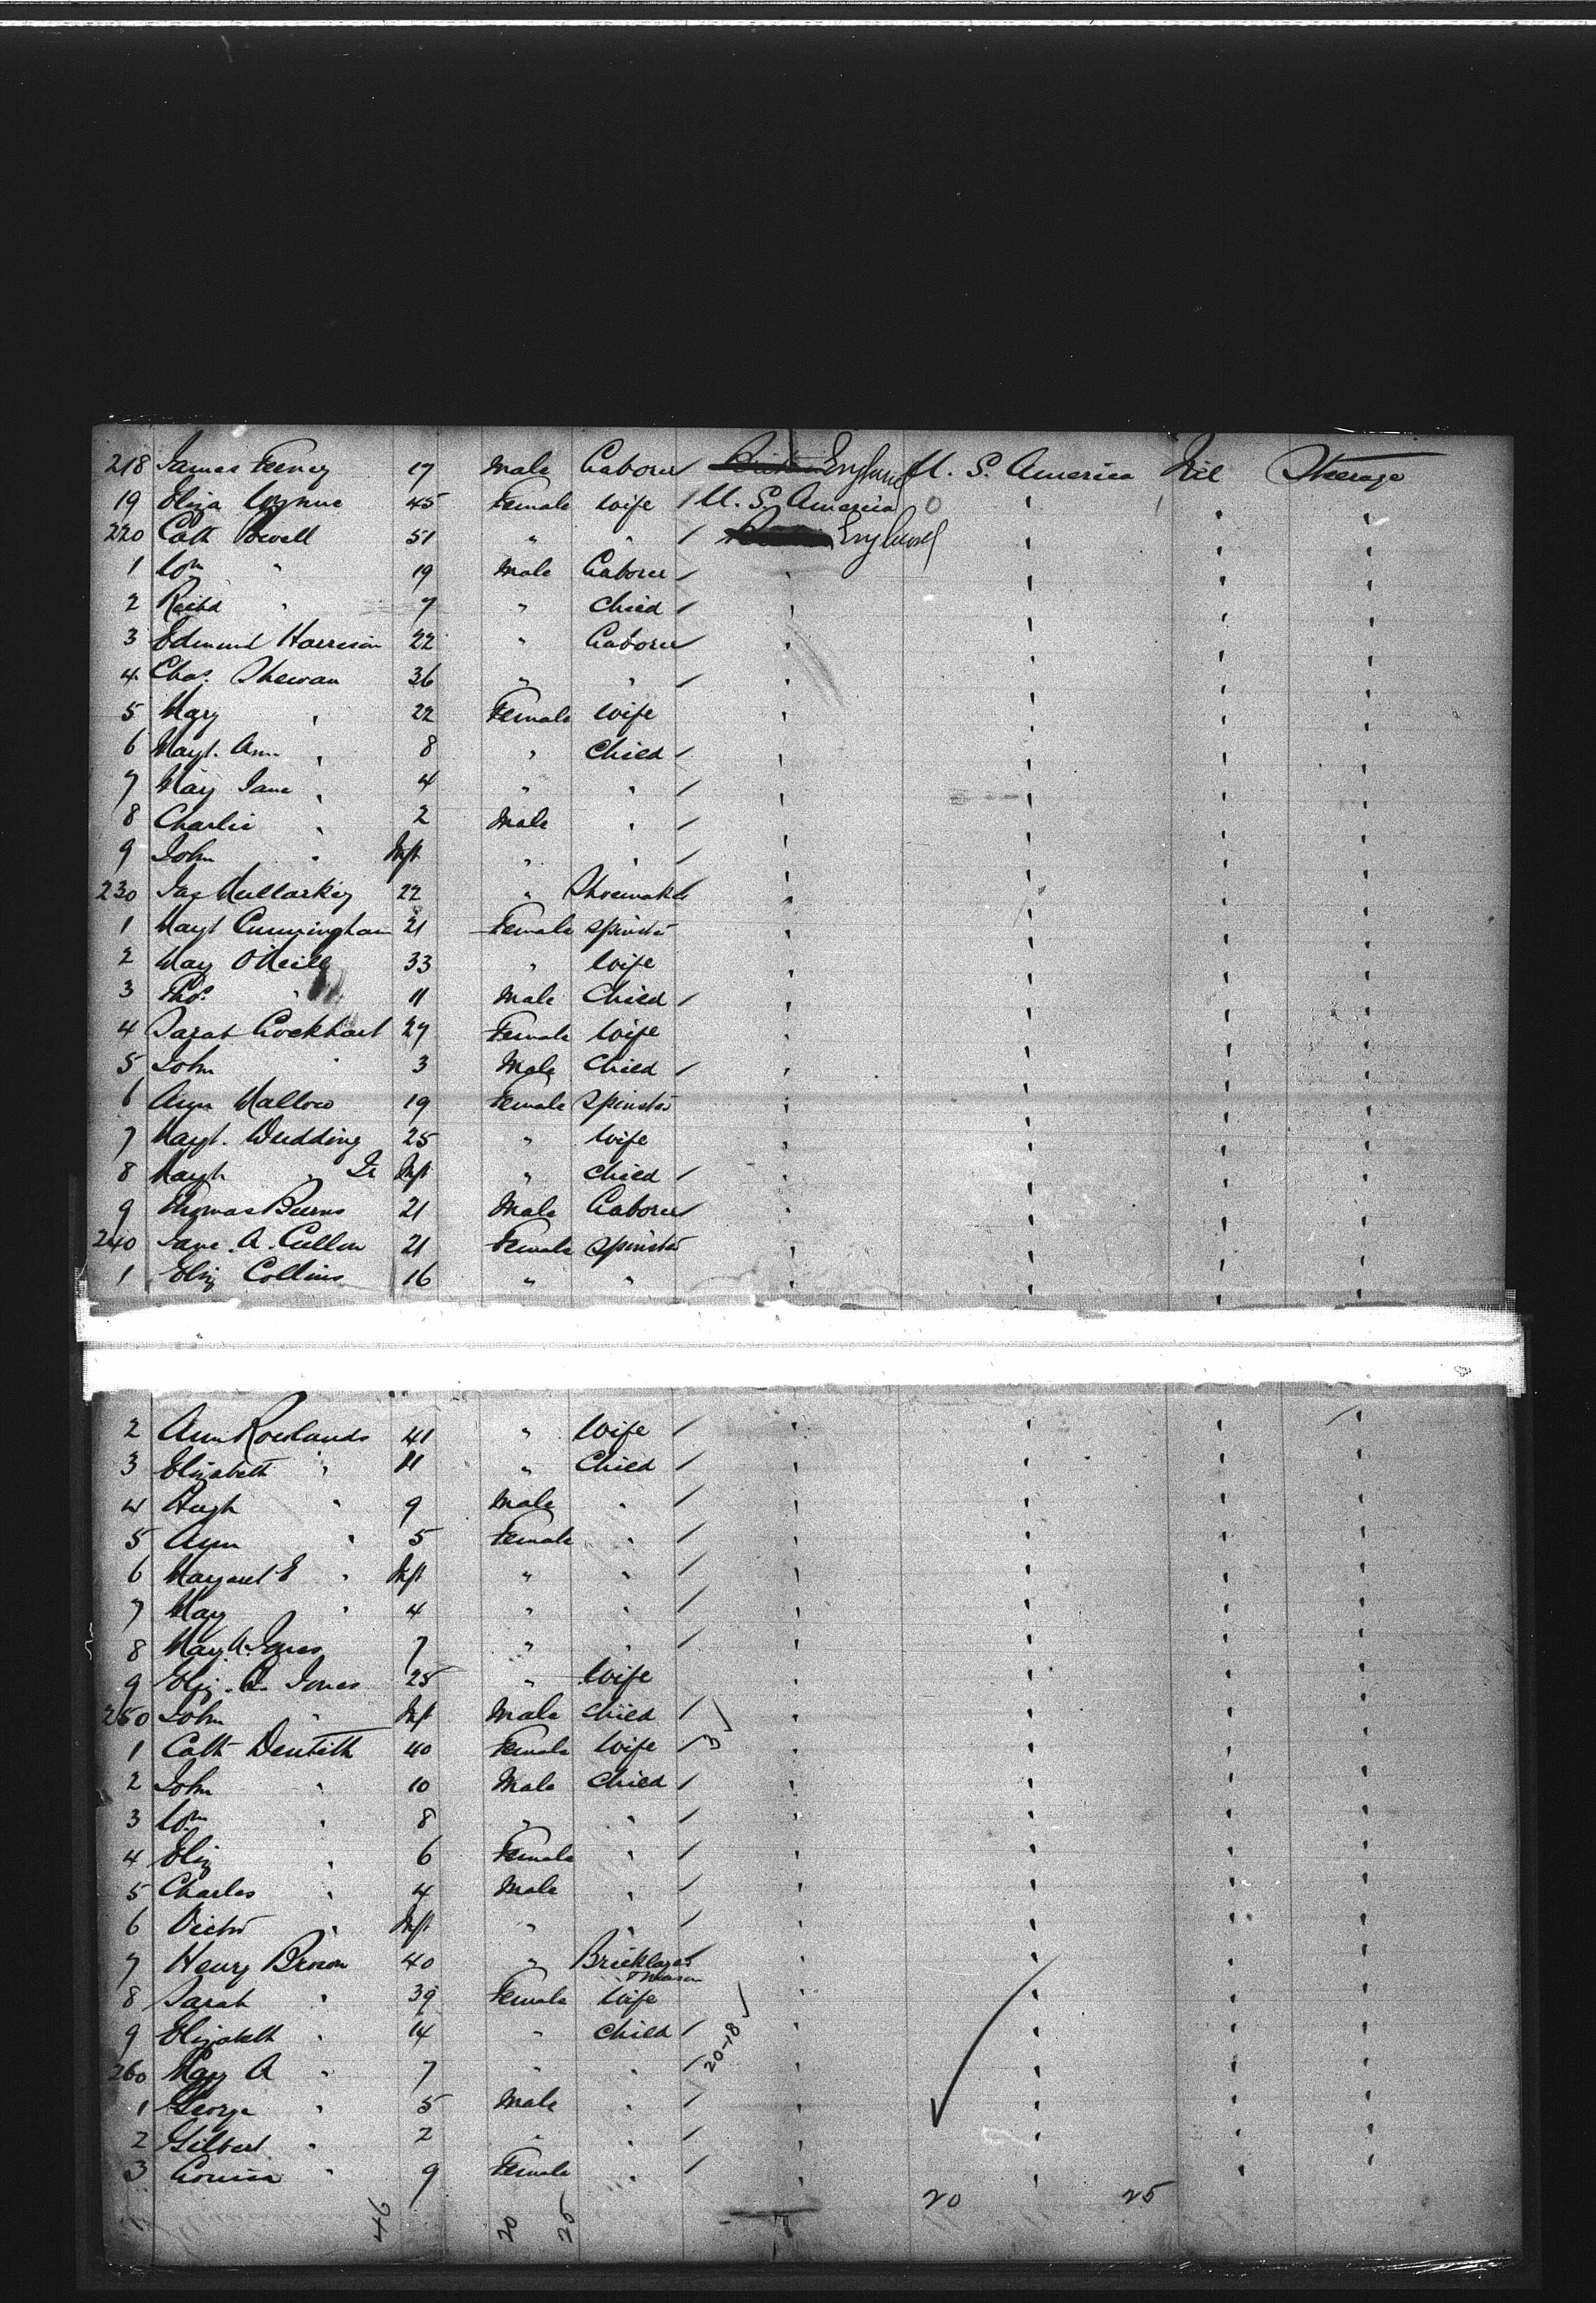 218 James Feeney 17 Male Laborer England U. S. America Nil Steerage
19 Eliza Wynne 45 Female Wife / U. S. America 0 '
220 Cath Powell 51 " " / England
1 Wm " 19 Male Laborer /
2 Richd " 7 " Child /
3 Edmund Harrison 22 " Laborer /
4 Chas. Shewan 36 " " /
5 Mary " 22 Female Wife
6 Magt. Ann " 8 " Child /
7 Mary Jane " 4 " " /
8 Charlie " 2 Male " /
9 John " Inft " " /
230 Jas Mullarkey 22 " Shoemaker
1 Magt Cunningham 21 Female Spinster
2 Mary O'Neill 33 " Wife
3 Thos. " 11 Male Child /
4 Sarah Lockhart 27 Female Wife
5 John " 3 Male Child /
6 Ann Mallow 19 Female Spinster
7 Magt. Wedding 25 " Wife
8 Magt " Jr Inft " Child /
9 Thomas Burns 21 Male Laborer
240 Jane A. Cullen 21 Female Spinster
1 Eliz Collins 16 " "
2 Ann Rowlands 41 " Wife /
3 Elizabeth " 11 " Child /
4 Hugh " 9 Male " /
5 Ann " 5 Female " /
6 Margaret E " Inft " " /
7 Mary " 4 " " /
8 Mary A. Jones 7 " " /
9 Eliz. A. Jones 25 " Wife
250 John " Inft Male Child /
1 Cath Denteith 40 Female Wife / 3
2 John " 10 Male Child /
3 Wm " 8 " " /
4 Eliz " 6 Female " /
5 Charles " 4 Male " /
6 Victor " Inft " " /
7 Henry Brown 40 " Bricklayer
& Mason
8 Sarah " 39 Female Wife
9 Elizabeth " 14 " Child /
260 Mary A " 7 " " / 20-18
1 George " 5 Male " /
2 Gilbert " 2 " " /
3 Louisa " 9 Female " /
46 20 25 20 25